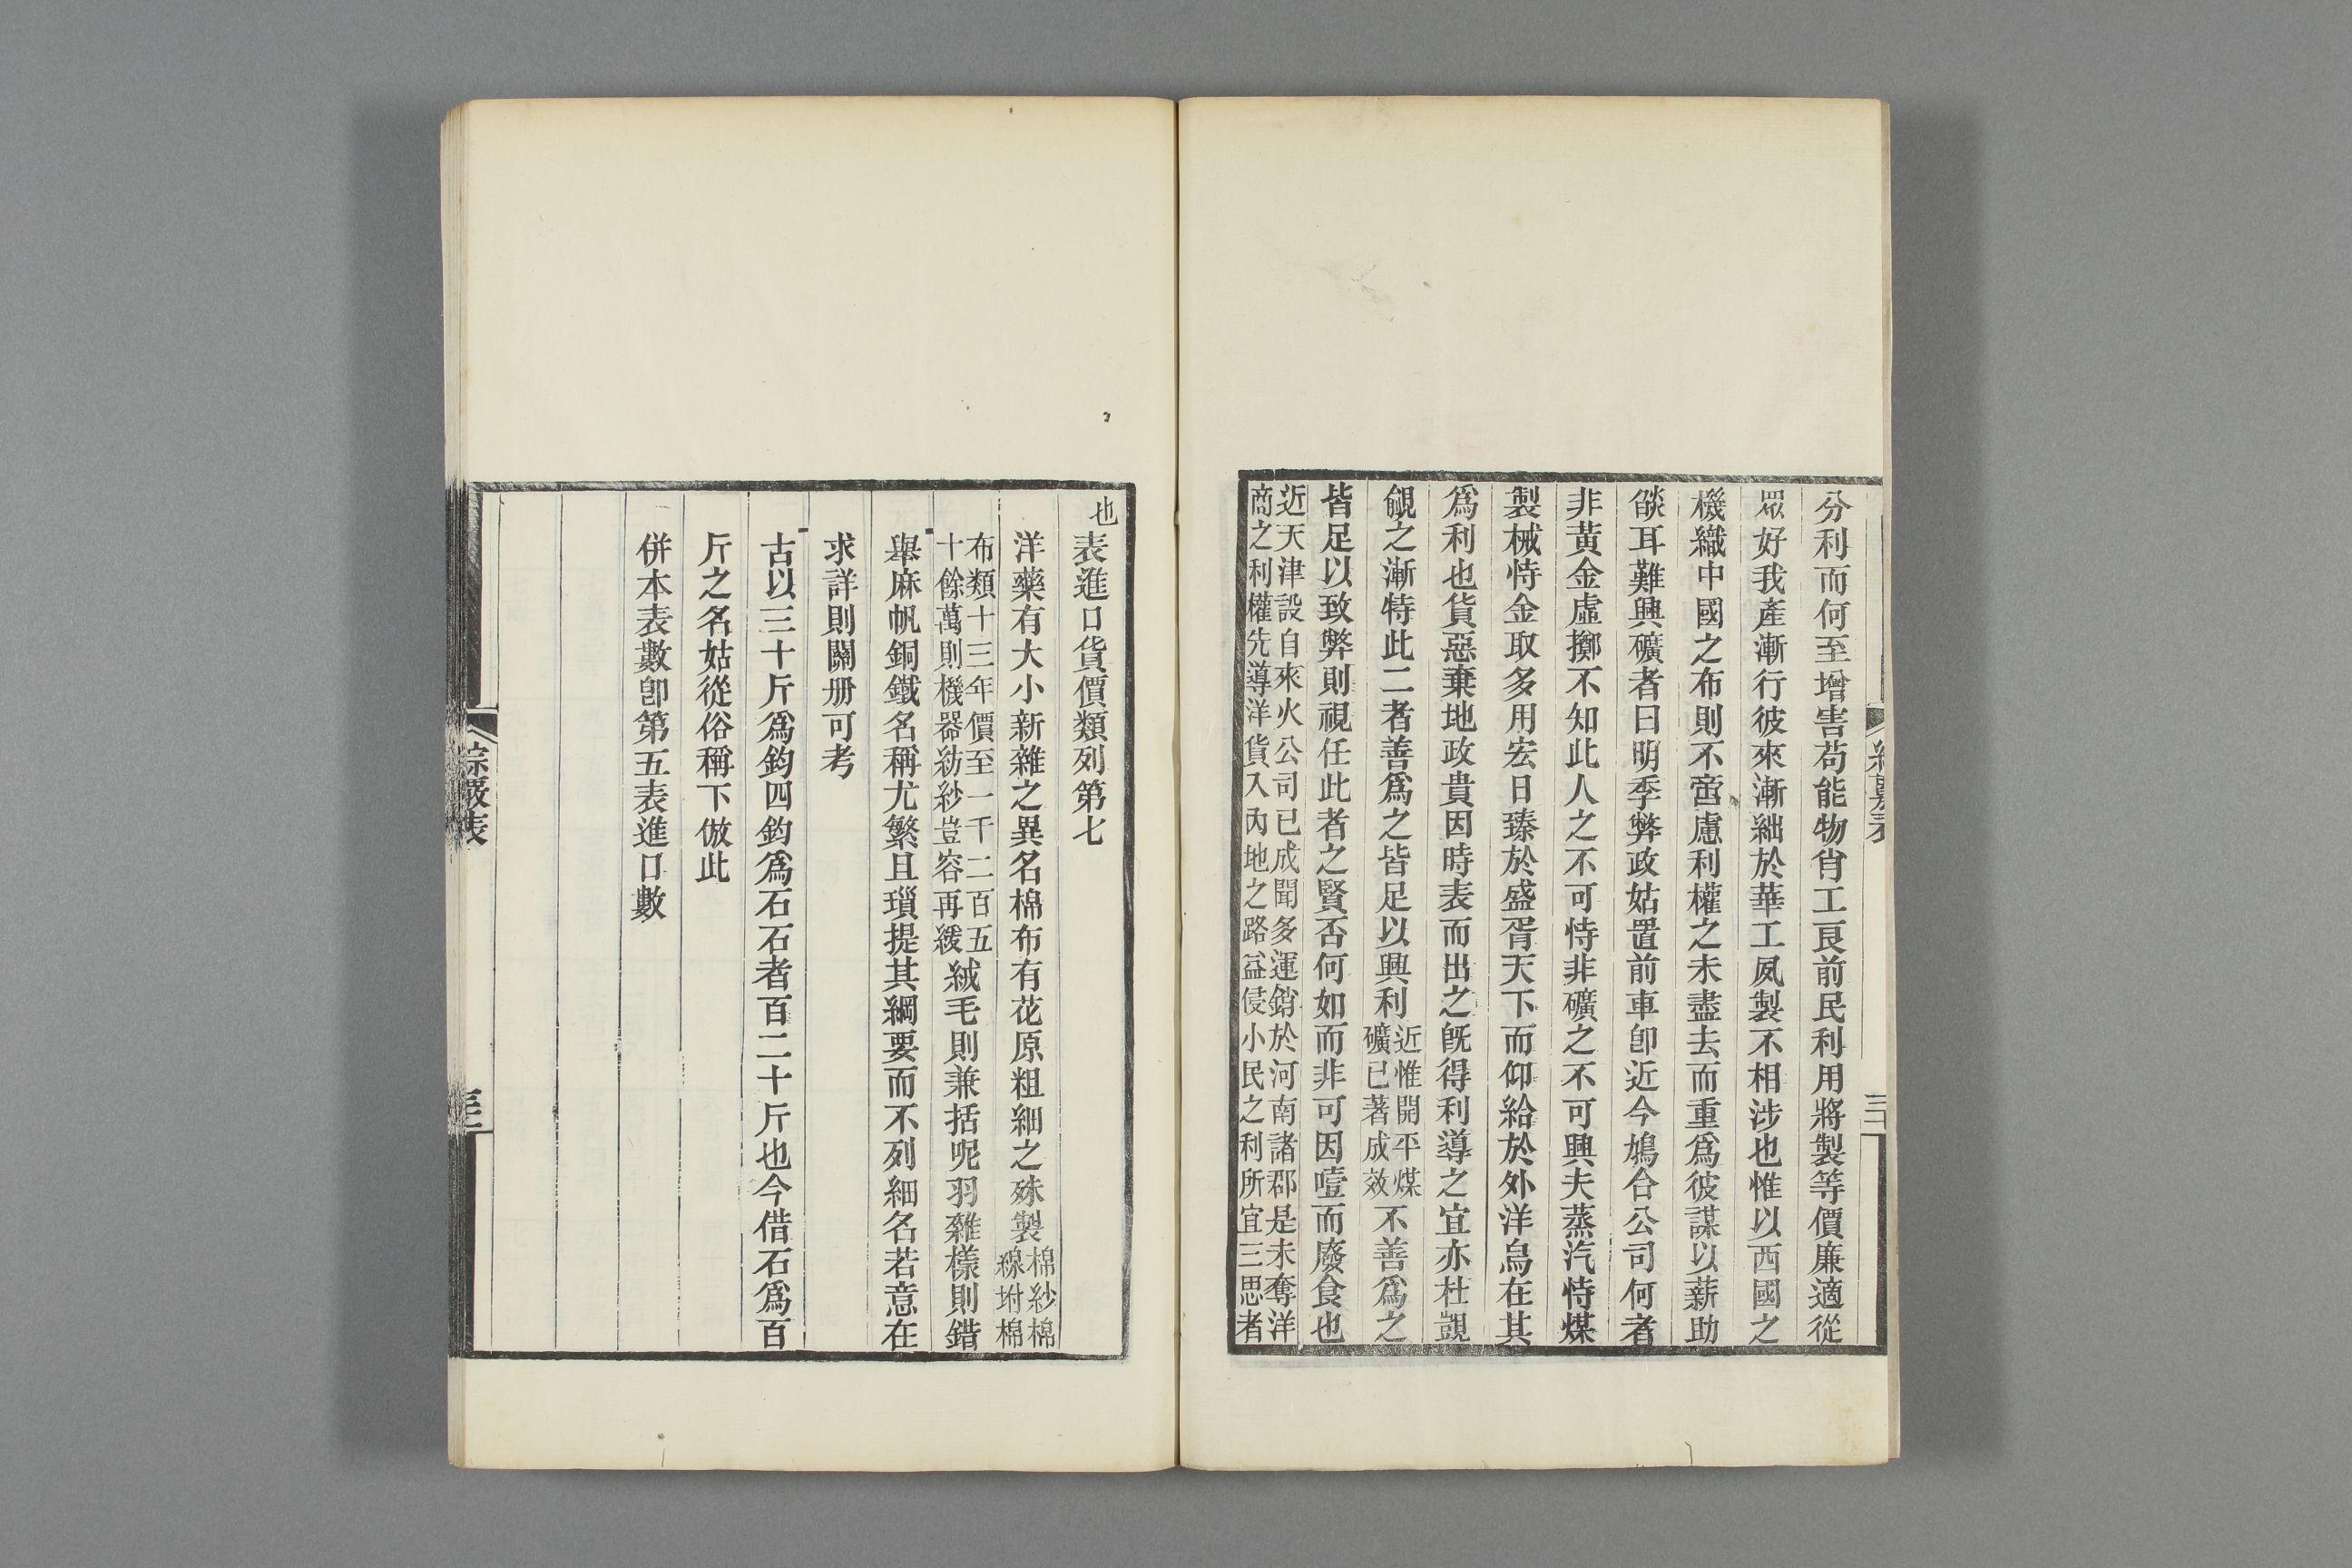 分利而何至增害苟能物肯工良前民利用將製等價廉適從
眾好我產漸行彼來漸絀於華工夙製不相涉也惟以西國之
機織中國之布則不啻慮利權之未盡去而重爲彼謀以薪助
燄耳難興礦者曰明季弊政姑置前車卽近今鳩合公司何者
非黃金虛擲不知此人之不可恃非礦之不可興夫蒸汽恃煤
製械恃金取多用宏日臻於盛胥天下而仰給於外洋烏在其
爲利也貨惡棄地政貴因時表而出之旣得利導之宜亦杜覬
覦之漸特此二者善爲之皆足以興利近惟開平煤礦已著成效不善爲之
皆足以致弊則視任此者之賢否何如而非可因噎而廢食也
近天津設自來火公司已成聞多運銷於河南諸郡是未奪洋
商之利權先導洋貨入內地之路益侵小民之利所宜三思者
三十
也
表進口貨價類列第七
洋藥有大小新雜之異名棉布有花原粗細之殊製棉紗棉線坿棉
布類十三年價至一千二百五十餘萬則機器紡紗豈容再緩絨毛則兼括呢羽雜樣則錯
舉麻帆銅鐵名稱尤繁且瑣提其綱要而不列細名若意在
求詳則關册可考
古以三十斤爲鈞四鈞爲石石者百二十斤也今借石爲百
斤之名姑從俗稱下倣此
併本表數卽第五表進口數
綜覈表